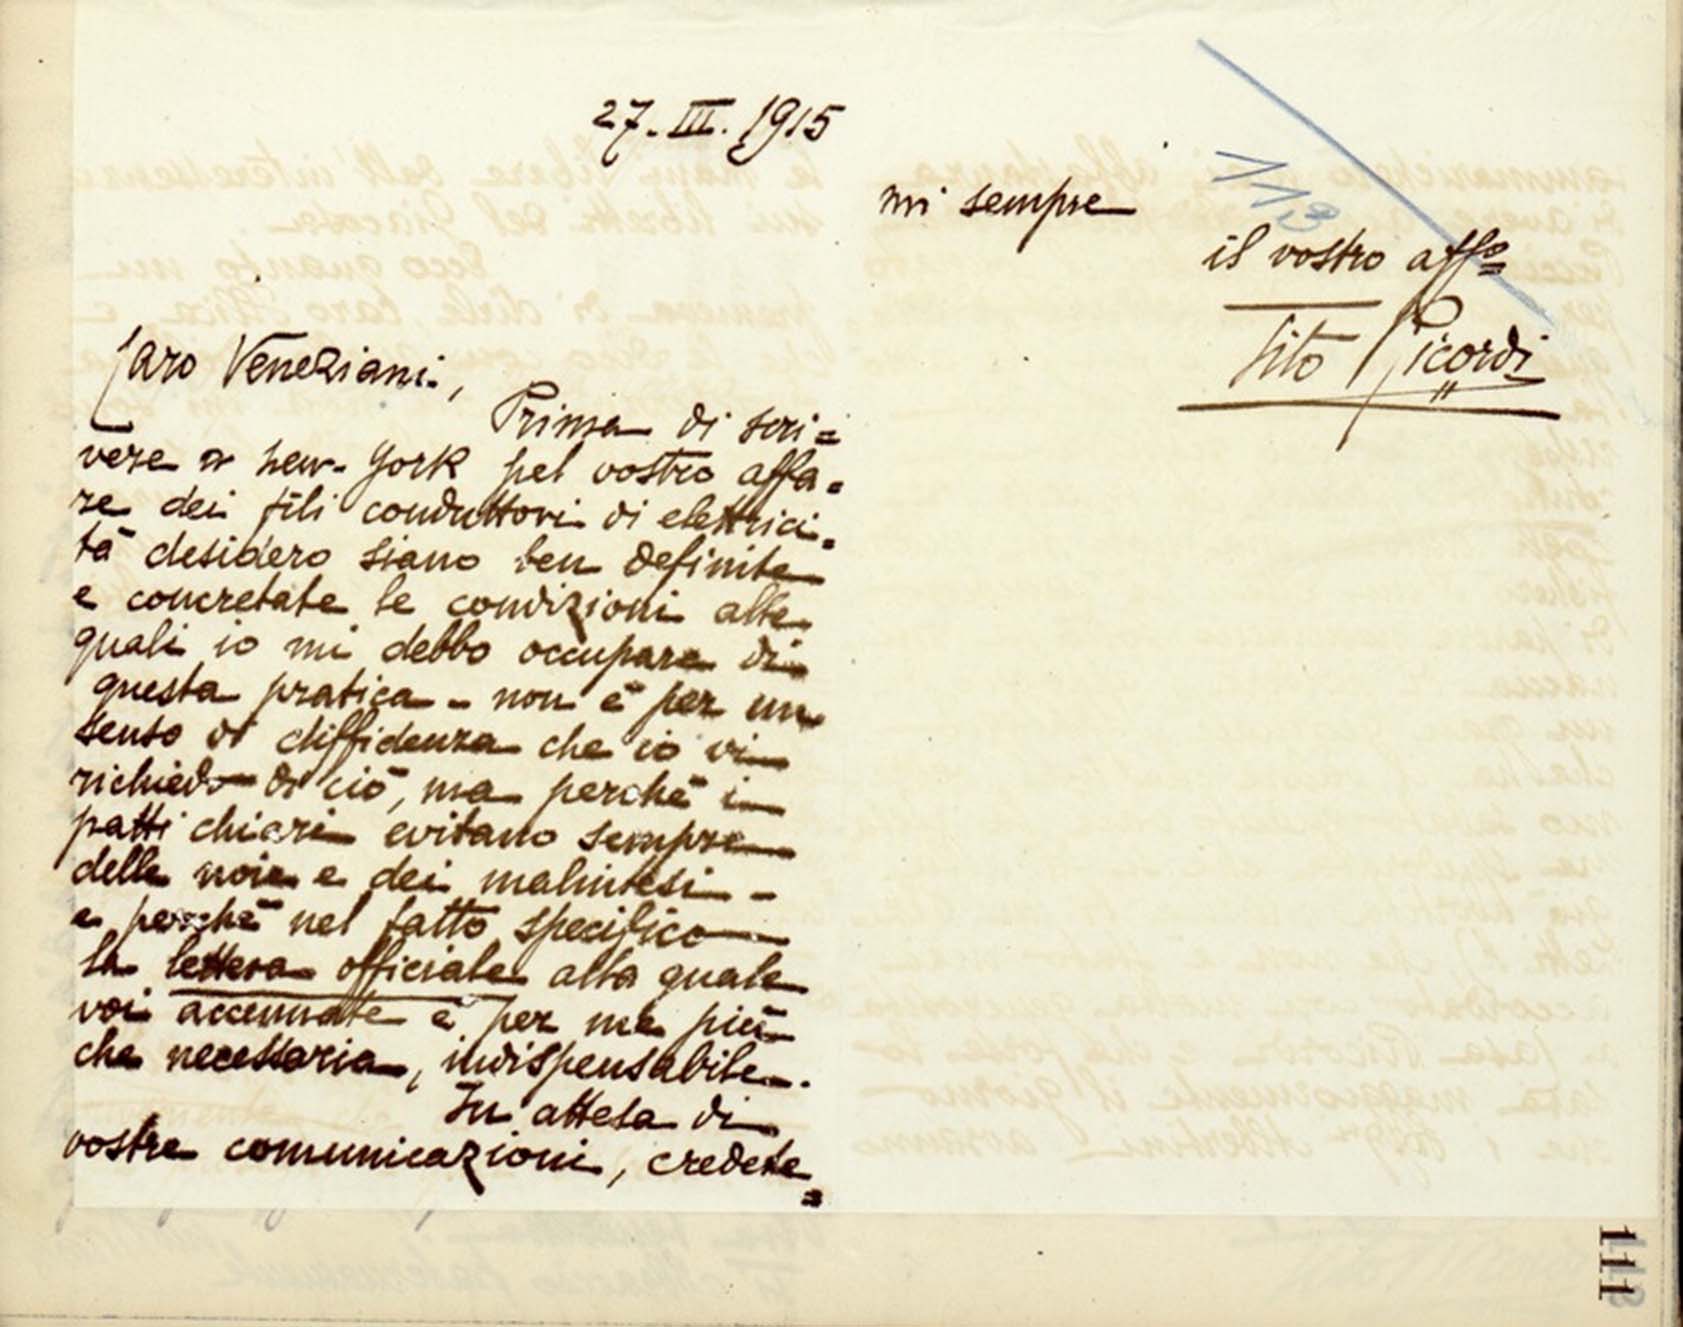 27. III. 1915
Caro Veneziani,
Prima di scri=
vere a New-York pel vostro affa=
re dei fili conduttori di elettrici=
tà desidero siano ben definite
e concretate le condizioni alle
quali io mi debbo occupare di
questa pratica - non è per un
senso di diffidenza che io vi
richiedo di ciò, ma perchè i
patti chiari evitano sempre
delle noie e dei malintesi -
e perchè nel fatto specifico
la lettera officiale alla quale
voi accennate è per me più
che necessaria, indispensabile.
In attesa di
vostre comunicazioni, credete=
mi sempre
il vostro affo
Tito Ricordi
113
111